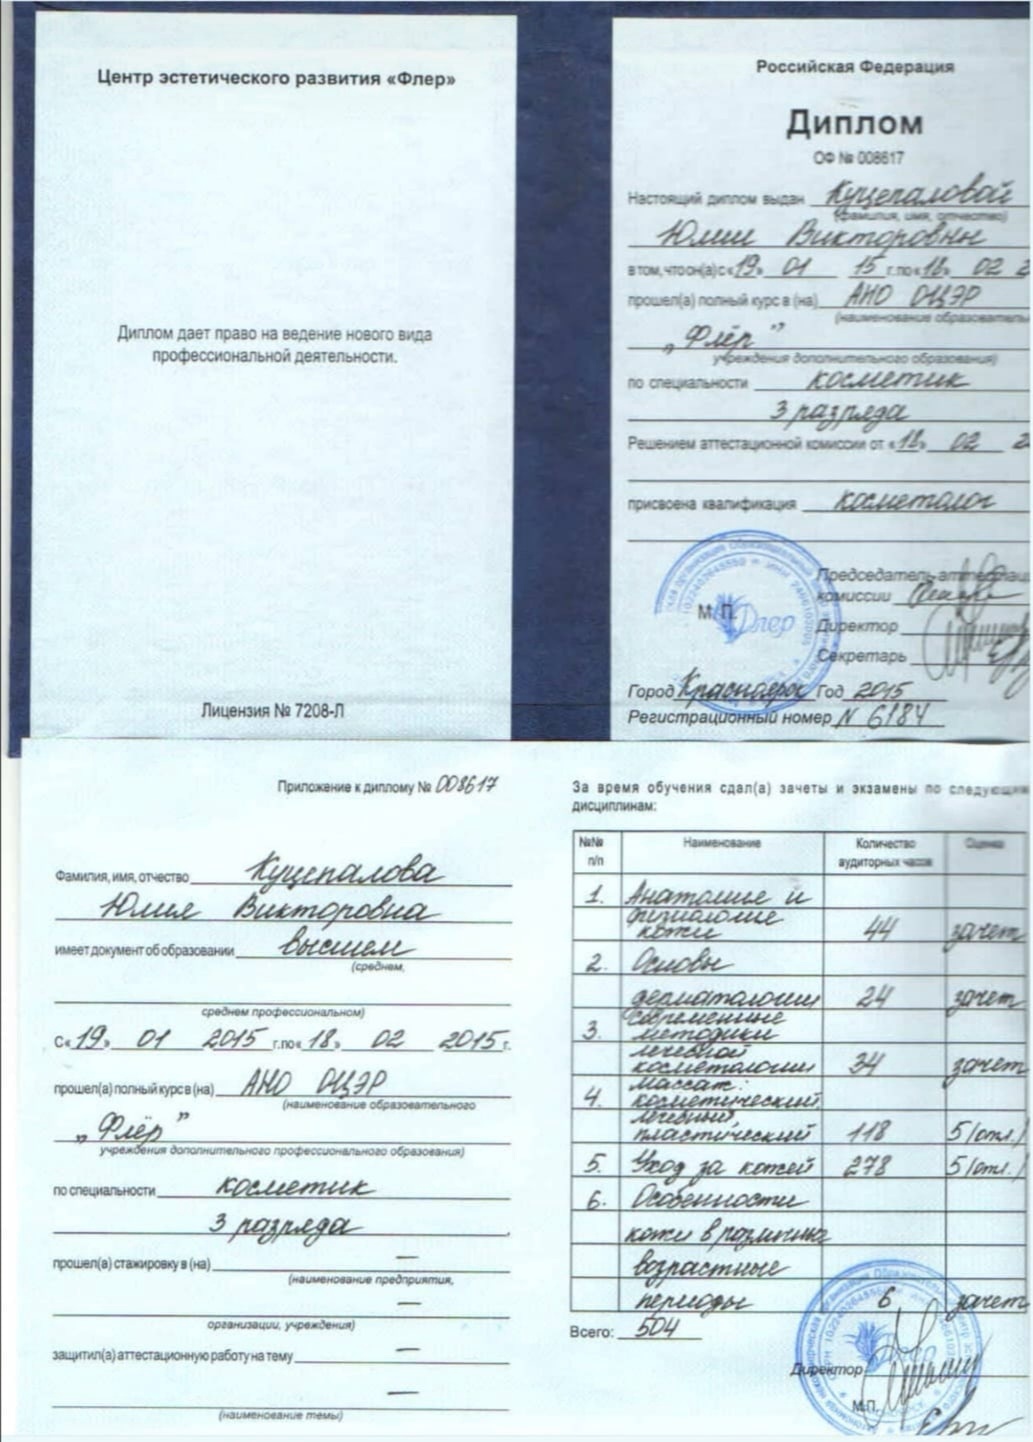 Центр эстетического развития «Флер»
Диплом дает право на ведение нового вида
профессиональной деятельности.
Лицензия № 7208-Л
Российская Федерация
Диплом
ОФ № 008617
Настоящий диплом выдан Куцепаловой
(фамилия, имя, отчество)
Юлии Викторовны
в том, что он(а) с «19» 01 15 г. по «18» 02
прошел(а) полный курс в (на) АНО ОЦЭР
(наименование
„Флёр”
учреждения дополнительного образования)
по специальности косметик
3 разряда
Решением аттестационной комиссии от «18» 02
присвоена квалификация косметолог
Председатель
комиссии
М. П.
Флер
Директор
Секретарь
Город Красноярск Год 2015
Регистрационный номер N 6184
Приложение к диплому № 008617
Фамилия, имя, отчество Куцепалова
Юлия Викторовна
имеет документ об образовании высшем
(среднем,
среднем профессиональном)
С «19» 01 2015 г. по «18» 02 2015 г.
прошел(а) полный курс в (на) АНО ОЦЭР
(наименование образовательного
„Флёр”
учреждения дополнительного профессионального образования)
по специальности косметик
3 разряда
прошел(а) стажировку в (на) —
(наименование предприятия,
—
организации, учреждения)
защитил(а) аттестационную работу на тему —
—
(наименование темы)
За время обучения сдал(а) зачеты и экзамены по следующим
дисциплинам:
№№ п/п Наименование Количество аудиторных часов Оценка
1. Анатомия и
физиология
кожи 44 зачет
2. Основы
дерматологии 24 зачет
3. Современные
методики
лечебной
косметологии 34 зачет
4. Массаж:
косметический,
лечебный,
пластический 118 5 (отл.)
5. Уход за кожей 278 5 (отл.)
6. Особенности
кожи в
возрастные
периоды 6 зачет
Всего: 504
Директор
М.П.